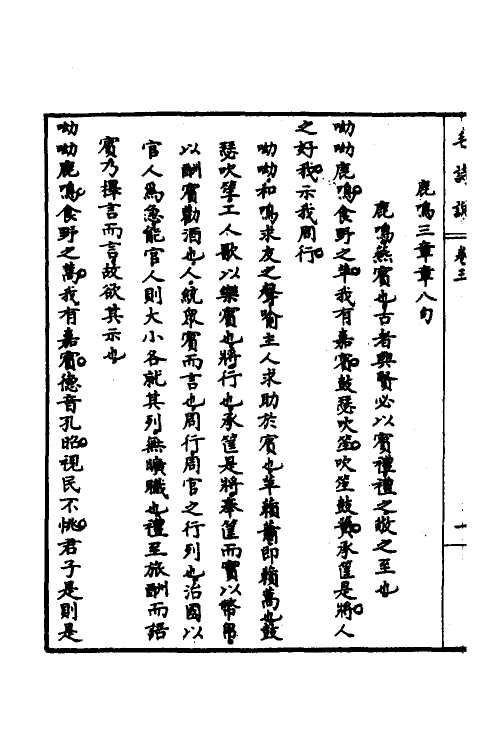 毛詩說 卷三 一
鹿鳴三章章八句
鹿鳴燕賓也古者興賢必以賓禮禮之敬之至也
呦呦鹿鳴食野之苹我有嘉賓鼓瑟吹笙吹笙鼓簧承筐是將人
之好我示我周行
呦呦和鳴求友之聲喻主人求助於賓也苹藾蕭即藾蒿也鼓
瑟吹笙工人歌以樂賓也將行也承筐是將奉筐而實以幣帛
以酬賓勸酒也人統眾賓而言也周行周官之行列也治國以
官人為急能官人則大小各就其列無曠職也禮至旅酬而語
賓乃擇言而言故欲其示也
呦呦鹿鳴食野之蒿我有嘉賓德音孔昭視民不恌君子是則是